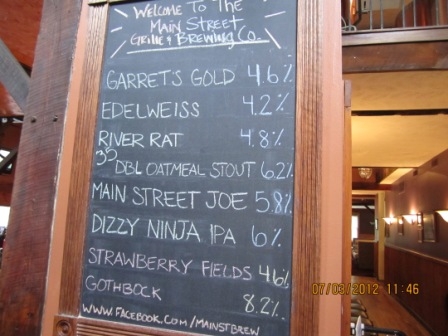 WELCOME TO THE
MAIN STREET
GRILLE & BREWING CO.
GARRETS GOLD 4.6%
EDELWEISS 4.2%
RIVER RAT 4.8%
35
DBL OATMEAL STOUT 6.2%
MAIN STREET JOE 5.8%
DIZZY NINJA IPA 6%
STRAWBERRY FIELDS 4.6%
GOTHBOCK 8.2%
WWW.FACEBOOK.COM/MAINSTBREW
07/03/2012 11:46